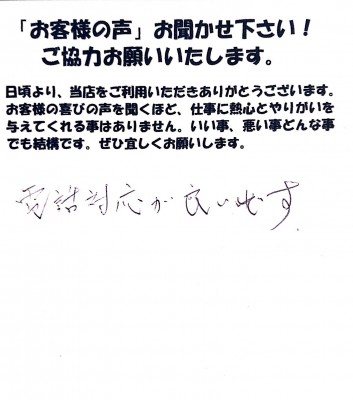 「お客様の声」お聞かせ下さい！
ご協力お願いいたします。
日頃より、当店をご利用いただきありがとうございます。
お客様の喜びの声を聞くほど、仕事に熱心とやりがいを
与えてくれる事はありません。いい事、悪い事どんな事
でも結構です。ぜひ宜しくお願いします。
電話対応が良いです